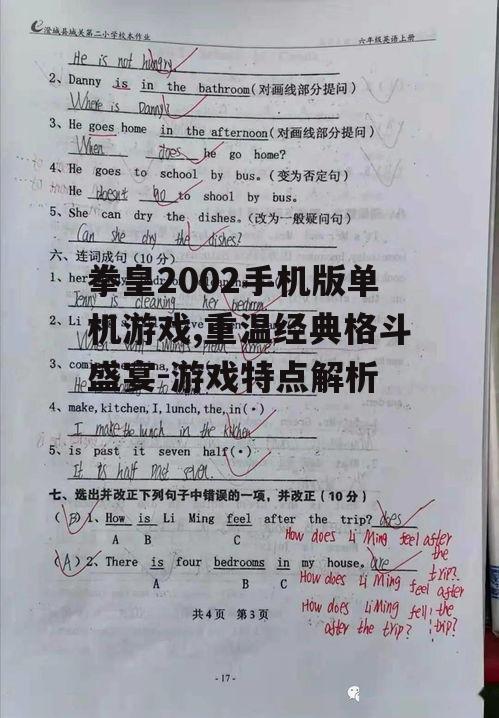 澄城县城关第二小学校本作业 六年级英语上册
He is not hungry
2、Danny is in the bathroom(对画线部分提问)
Where is Danny?
3、He goes home in the afternoon(对画线部分提问)
When does he go home?
4、He goes to school by bus.(变为否定句)
He doesn't go to shool by bus.
5、She can dry the dishes.(改为一般疑问句)
Can she dry the dishes?
六、连词成句(10分)
拳皇2002手机版单
1、her
Jenny is cleaning her bedroom.
2、Li
机游戏,重温经典格斗
3、com
盛宴-游戏特点解析
4、make,kitchen,I,lunch,the,in(·)
I make the lunch in the kitchen
5、is past it seven half(·)
It is half past seven.
七、选出并改正下列句子中错误的一项,并改正(10分)
(B)1、How is Li Ming feel after the trip? does
A B C
How does Li Ming feel after the trip?
(A)2、There is four bedrooms in my house. are
A B C
How does Li Ming feel after the trip?
How does Li Ming fell after the trip?
共4页 第3页
-17-